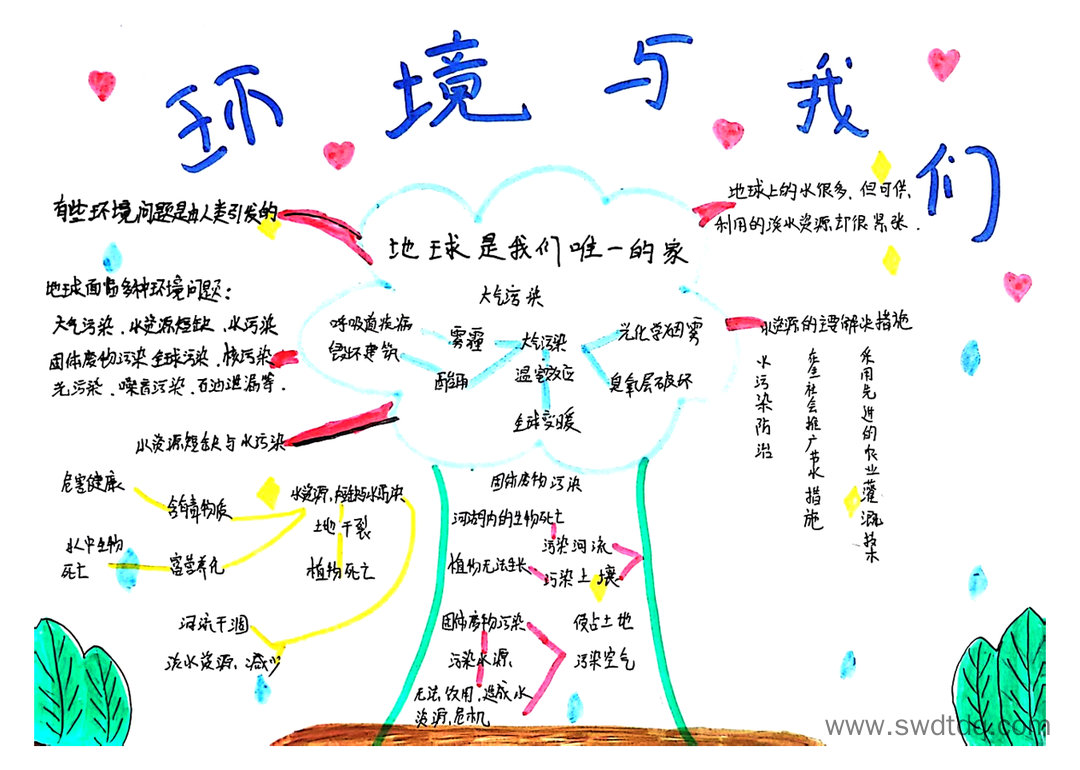 环境与我们
有些环境问题是由人类引发的
地球面临多种环境问题:
大气污染、水资源短缺、水污染
固体废物污染全球污染、核污染
光污染、噪音污染、石油泄漏等.
水资源短缺与水污染
危害健康
含有毒物质
水资源、短缺与水污染
土地干裂
植物死亡
水中生物
死亡
富营养化
河流干涸
淡水资源、减少
地球是我们唯一的家
大气污染
呼吸道疾病
毁坏建筑
雾霾
酸雨
大气污染
温室效应
全球变暖
光化学烟雾
臭氧层破坏
固体废物污染
河湖内的生物死亡
污染河流
植物无法生长
污染土壤
固体废物污染
侵占土地
污染水源、
污染空气
无法饮用,造成水
资源,危机
地球上的水很多,但可供
利用的淡水资源却很紧张.
水资源的主要解决措施
水污染防治
在全社会推广节水措施
采用先进的农业灌溉技术
www.swdtdq.com